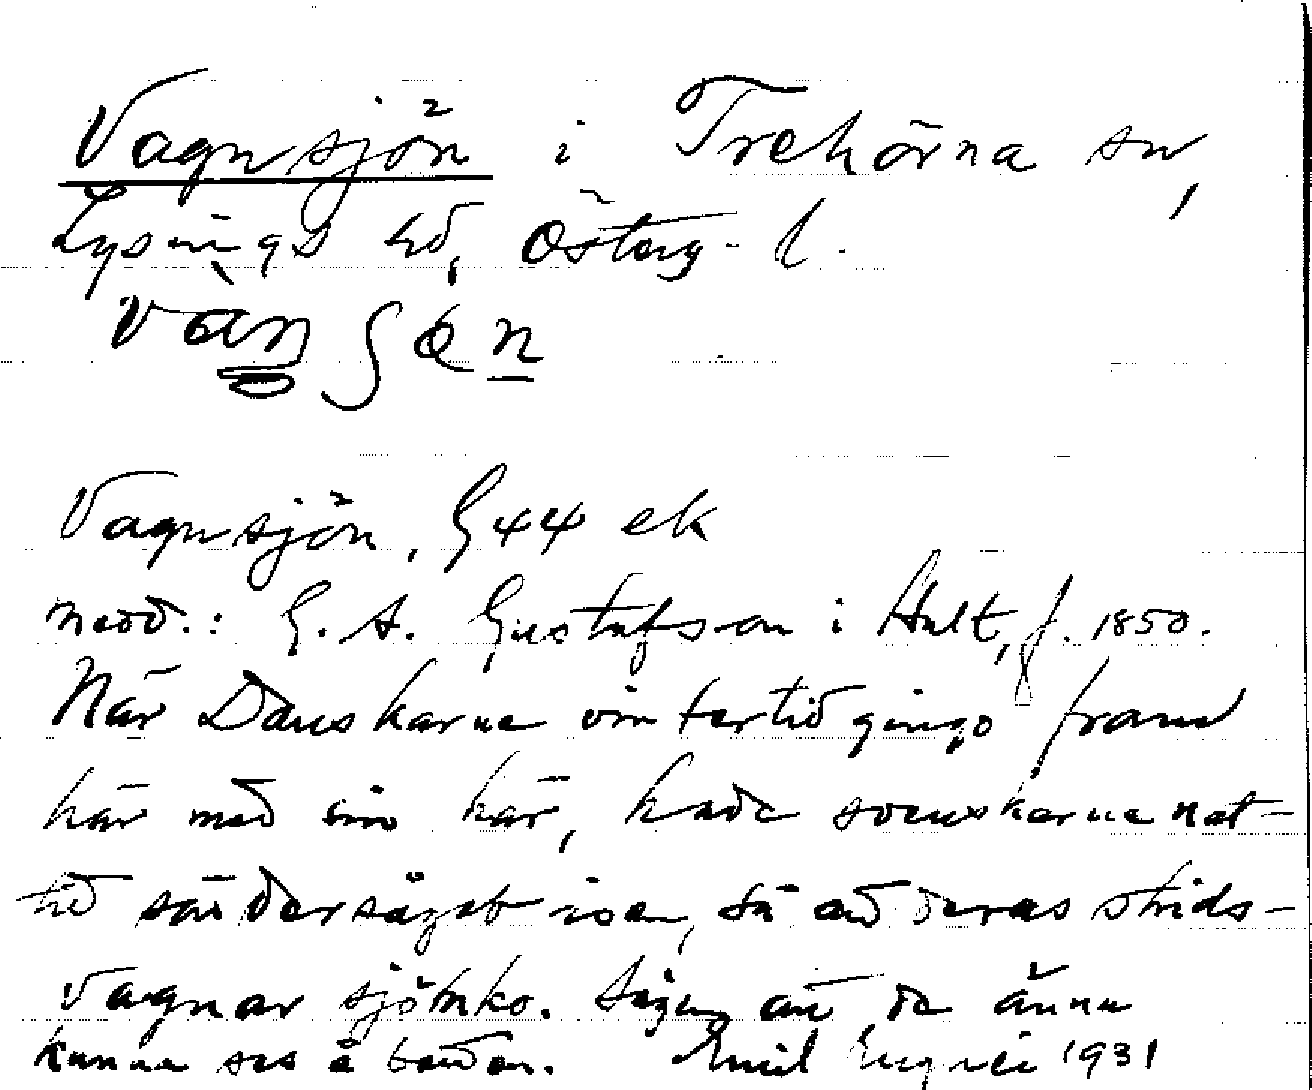 Vagnsjön i Trehörna sn,
Lysings hd, Österg. l.
Vagnsjön, G44 ek
medd.: G. A. Gustafsson i Hult, f. 1850.
När Danskarne vintertid gingo fram
här med sin här, hade svenskarne nat-
tid söndersågat isen, så att deras strids-
vagnar sjönko. Säges att de ännu
kunna ses å botten. Emil 1931